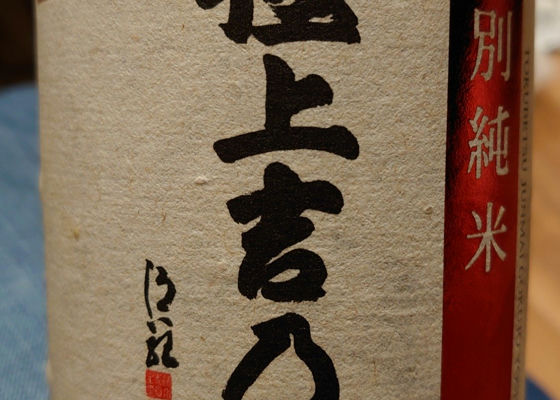 極上吉乃
別純米
TOKUBETSU JUNMAI